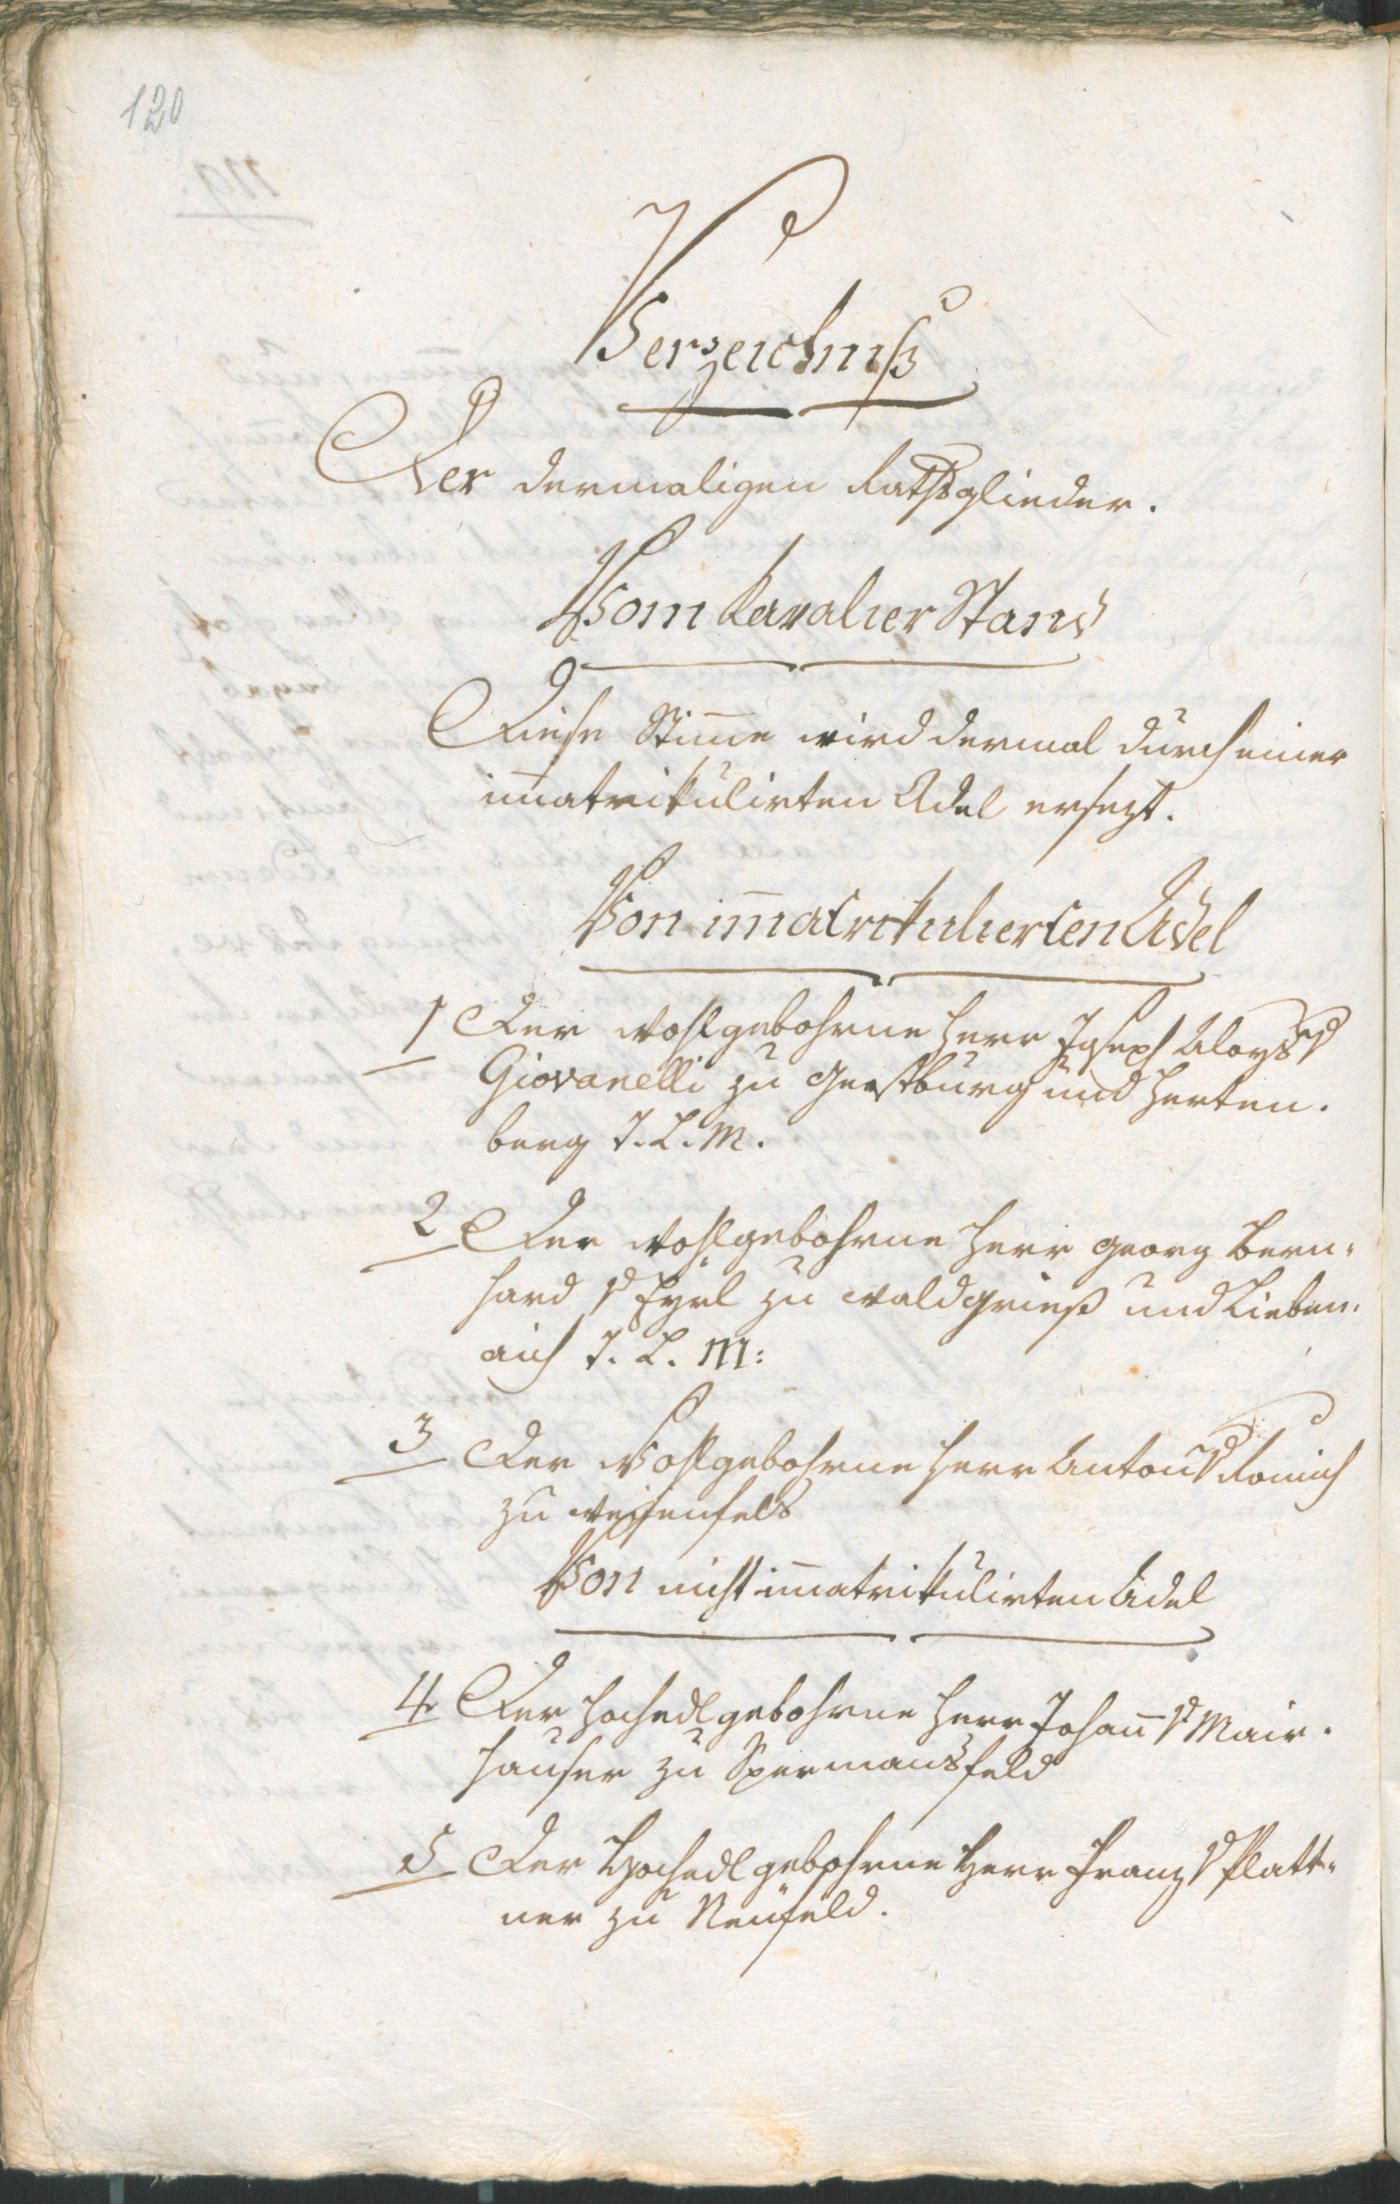 120
Verzeichniß
Der dermaligen Rathsglieder.
Vom Kavalier Stand
Diese Stimme wird dermal durch einer
im̅atrikulirten Adel ersezt.
Von im̅atrikulierten Adel
1 Der wohlgebohrne Herr Joseph Aloys v
Giovanelli zu Gerstburg und Herten.
berg T. L. M.
2 Der wohlgebohrne Herr Georg Bern,
hard v Eyrl zu Waldgrieß und Lieben,
aich T. L. M:
3 Der Wohlgebohrne Herr Anton v
zu Weissenfels
Von nicht im̅atrikulirten Adel
4 Der Hochedlgebohrne Herr Johan̅ v Mair.
hauser zu Spermansfeld
5 Der Hochedlgebohrne Herr Franz v Platt,
ner zu Neufeld.